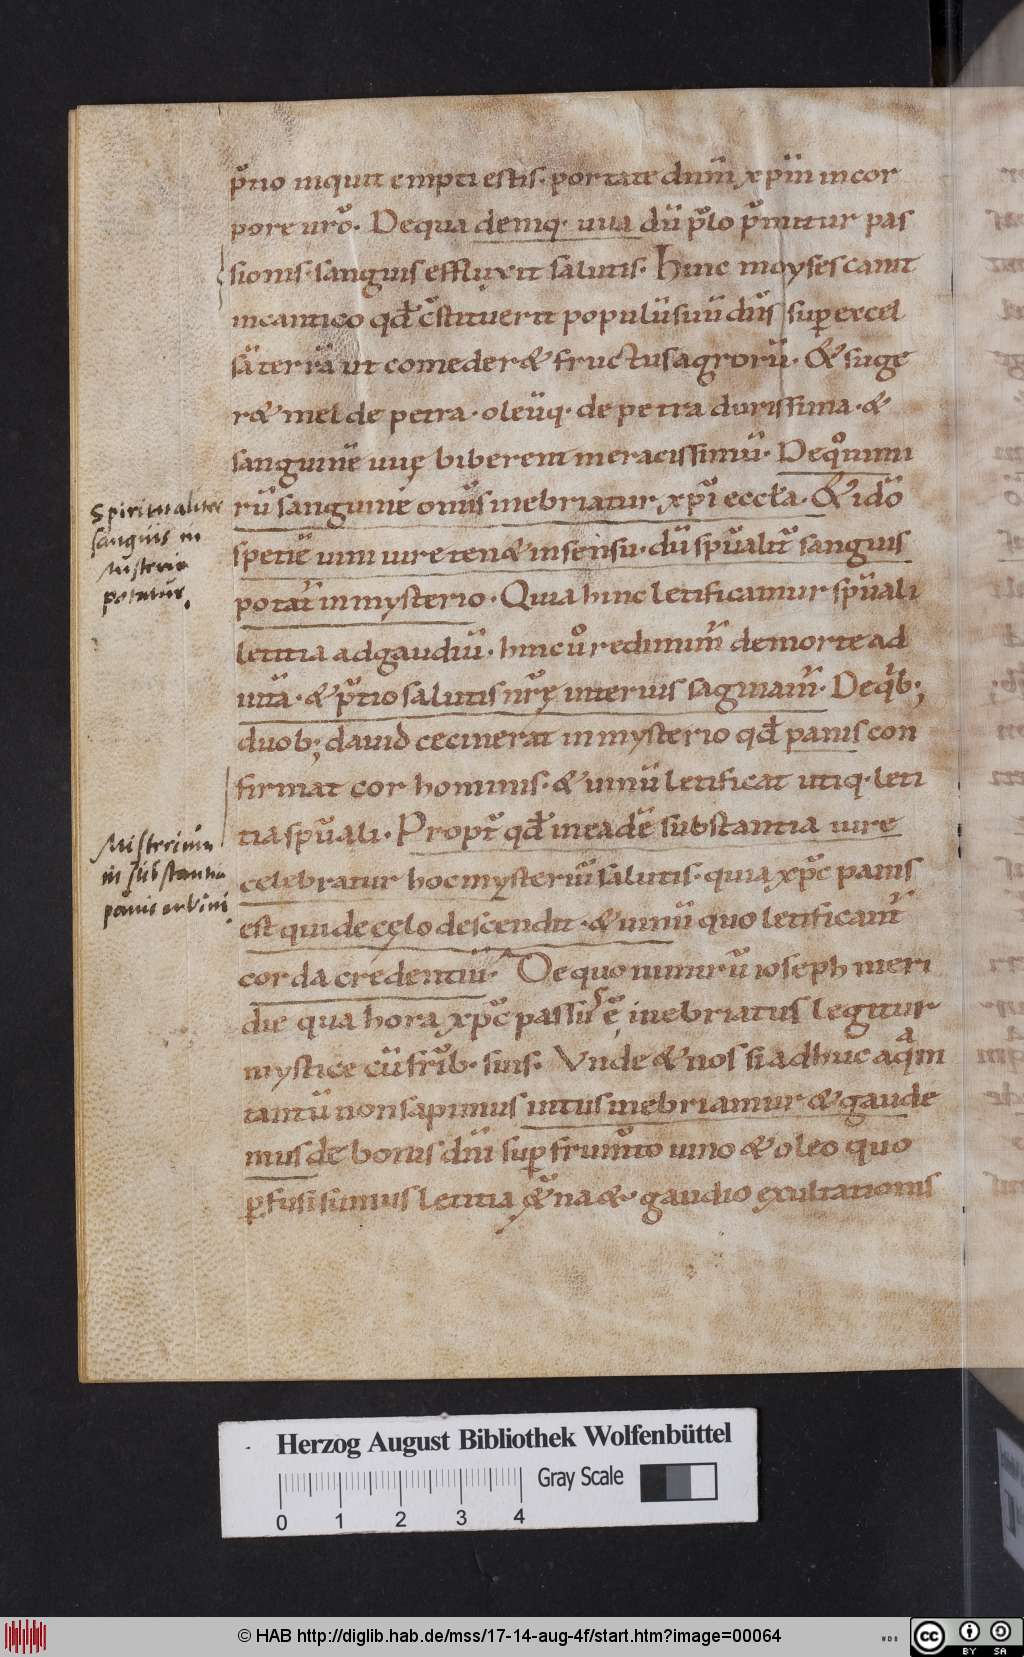 p̃tio inquit empti estis · portate dnm̄ xpm̄ in cor
pore ur̃o · De qua deniq· uua dū p̃lo p̃mitur pas
sionis · sanguis effluxit salutis · Hinc moyses canit
in cantico qđ c̃stituerit populū suū dn̄s sup excel
sā terrā ut comeder& fructus agrorū · & suge
r& mel de petra · oleūq· de petra durissima · &
sanguinē uuę biberent meracissimū · De q°nimi
rū sanguine om̄s inebriatur xp̄i eccła · & idō
spetiē uini iure ten& in sensu · dū sp̄ualit̃ sanguis
potat̃ in mysterio · Quia hinc letificamur sp̄uali
letitia ad gaudiū · hinc u°redimim̃ de morte ad
uitā · & p̃tio salutis nr̃ę interius saginam̃ · De qib;
duob; dauid cecinerat in mysterio qđ panis con
firmat cor hominis · & uinū letificat utiq· leti
tia sp̄uali · Propt̃ qđ in eadē substantia iure
celebratur hoc mysteriū salutis · quia xp̄c panis
est qui de cęlo descendit · & uinū quo letificant̃
corda credentiū · De quo nimirū ioseph meri
die qua hora xp̄c passus ē, inebriatus legitur
mystice cū fr̄ib· suis · Vnde & nos si adhuc aqam
tantū non sapimus intus inebriamur & gaude
mus de bonis dn̄i sup frum̃to uino & oleo quo
pfusi simus letitia ęt̃na & gaudio exultationis
Spiritualiter
sanguis in
misterio
potatur.
Misterium
in substantia
panis et vini
Herzog August Bibliothek Wolfenbüttel
Gray Scale
0 1 2 3 4
© HAB http://diglib.hab.de/mss/17-14-aug-4f/start.htm?image=00064
WDB
cc BY SA